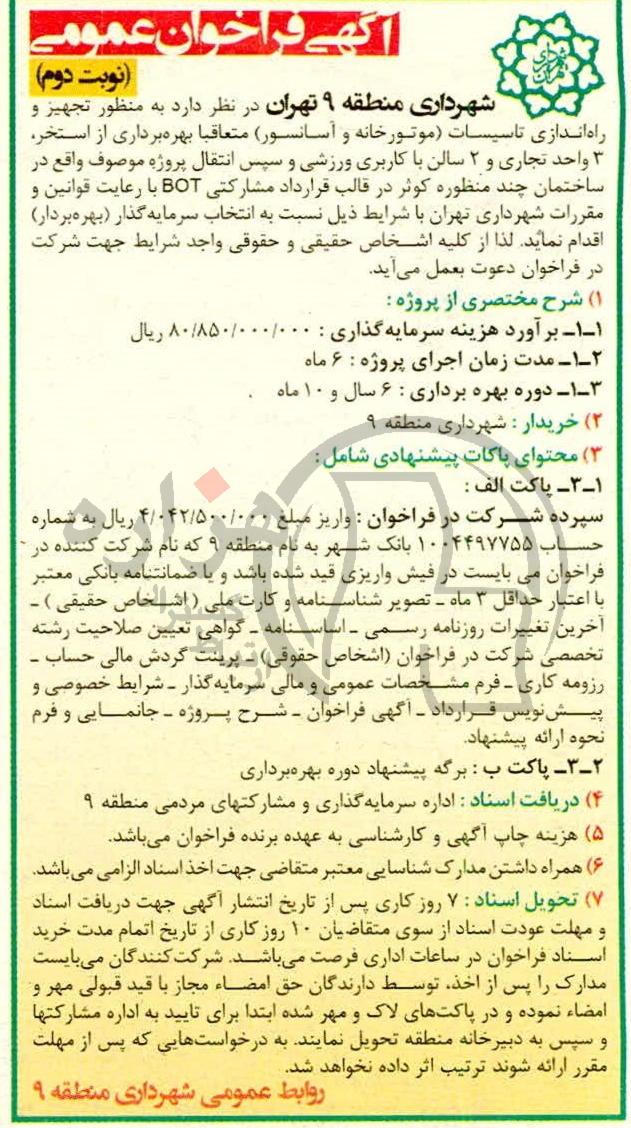 آگهی فراخوان عمومی
(نوبت دوم)
شهرداری تهران
شهرداری منطقه ۹ تهران در نظر دارد به منظور تجهیز و
راه‌اندازی تاسیسات (موتورخانه و آسانسور) متعاقبا بهره‌برداری از استخر،
۳ واحد تجاری و ۲ سالن با کاربری ورزشی و سپس انتقال پروژه موصوف واقع در
ساختمان چند منظوره کوثر در قالب قرارداد مشارکتی BOT با رعایت قوانین و
مقررات شهرداری تهران با شرایط ذیل نسبت به انتخاب سرمایه‌گذار (بهره‌بردار)
اقدام نماید. لذا از کلیه اشخاص حقیقی و حقوقی واجد شرایط جهت شرکت
در فراخوان دعوت بعمل می‌آید.
۱) شرح مختصری از پروژه :
۱ـ۱ـ برآورد هزینه سرمایه‌گذاری : ۸۰/۸۵۰/۰۰۰/۰۰۰ ریال
۱ـ۲ـ مدت زمان اجرای پروژه : ۶ ماه
۱ـ۳ـ دوره بهره برداری : ۶ سال و ۱۰ ماه
۲) خریدار : شهرداری منطقه ۹
۳) محتوای پاکات پیشنهادی شامل :
۳ـ۱ـ پاکت الف :
سپرده شرکت در فراخوان : واریز مبلغ ۴/۰۴۲/۵۰۰/۰۰۰ ریال به شماره
حساب ۱۰۰۴۴۹۷۷۵۵ بانک شهر به نام منطقه ۹ که نام شرکت کننده در
فراخوان می بایست در فیش واریزی قید شده باشد و یا ضمانتنامه بانکی معتبر
با اعتبار حداقل ۳ ماه ـ تصویر شناسنامه و کارت ملی (اشخاص حقیقی) ـ
آخرین تغییرات روزنامه رسمی ـ اساسنامه ـ گواهی تعیین صلاحیت رشته
تخصصی شرکت در فراخوان (اشخاص حقوقی) ـ پرینت گردش مالی حساب ـ
رزومه کاری ـ فرم مشخصات عمومی و مالی سرمایه‌گذار ـ شرایط خصوصی و
پیش‌نویس قرارداد ـ آگهی فراخوان ـ شرح پروژه ـ جانمایی و فرم
نحوه ارائه پیشنهاد.
۳ـ۲ـ پاکت ب : برگه پیشنهاد دوره بهره‌برداری
۴) دریافت اسناد : اداره سرمایه‌گذاری و مشارکتهای مردمی منطقه ۹
۵) هزینه چاپ آگهی و کارشناسی به عهده برنده فراخوان می‌باشد.
۶) همراه داشتن مدارک شناسایی معتبر متقاضی جهت اخذ اسناد الزامی می‌باشد.
۷) تحویل اسناد : ۷ روز کاری پس از تاریخ انتشار آگهی جهت دریافت اسناد
و مهلت عودت اسناد از سوی متقاضیان ۱۰ روز کاری از تاریخ اتمام مدت خرید
اسناد فراخوان در ساعات اداری فرصت می‌باشد. شرکت‌کنندگان می‌بایست
مدارک را پس از اخذ، توسط دارندگان حق امضاء مجاز با قید قبولی مهر و
امضاء نموده و در پاکت‌های لاک و مهر شده ابتدا برای تایید به اداره مشارکتها
و سپس به دبیرخانه منطقه تحویل نمایند. به درخواست‌هایی که پس از مهلت
مقرر ارائه شوند ترتیب اثر داده نخواهد شد.
روابط عمومی شهرداری منطقه ۹